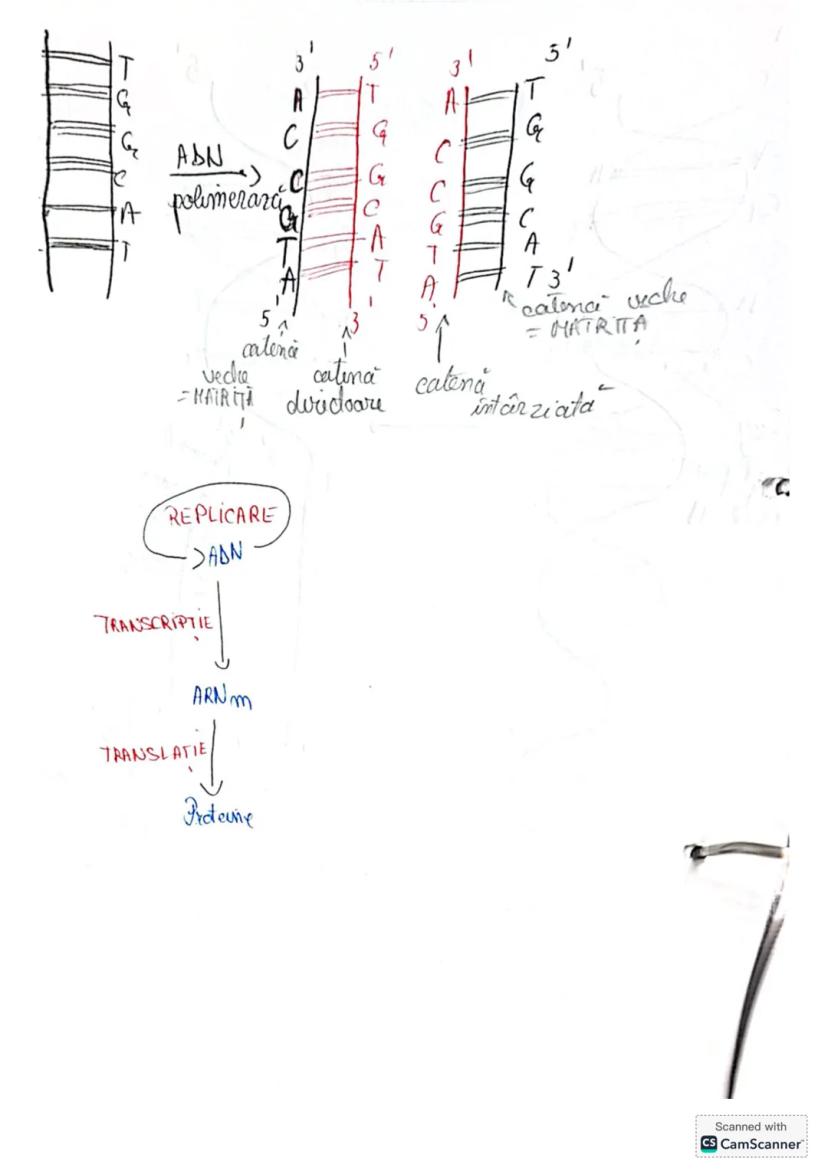 T
G
G
C
A
T
ADN
polimerază
3' 5'
A T
C G
C G
G C
T A
A T
5' 3'
catenă
veche
= MATRIȚĂ
catenă
3' 5'
A T
C G
C G
G C
T A
A T 3'
5'
catenă
întârziată
catenă veche
= MATRIȚĂ
REPLICARE
ADN
TRANSCRIPȚIE
ARNm
TRANSLAȚIE
Proteine
Scanned with
CS CamScanner